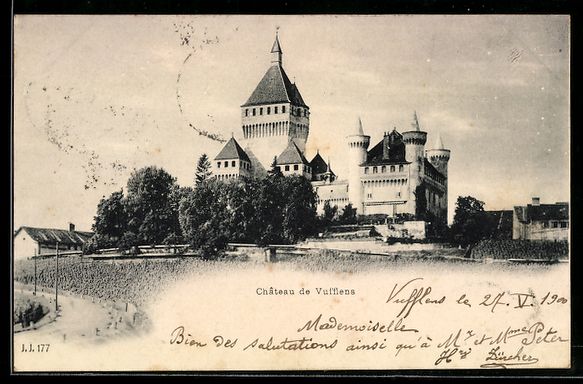 Château de Vufflens
Vufflens le 27. V. 1900
Mademoiselle
Bien des salutations ainsi qu'à Mr et Mme Peter
Zürcher
J. J. 177